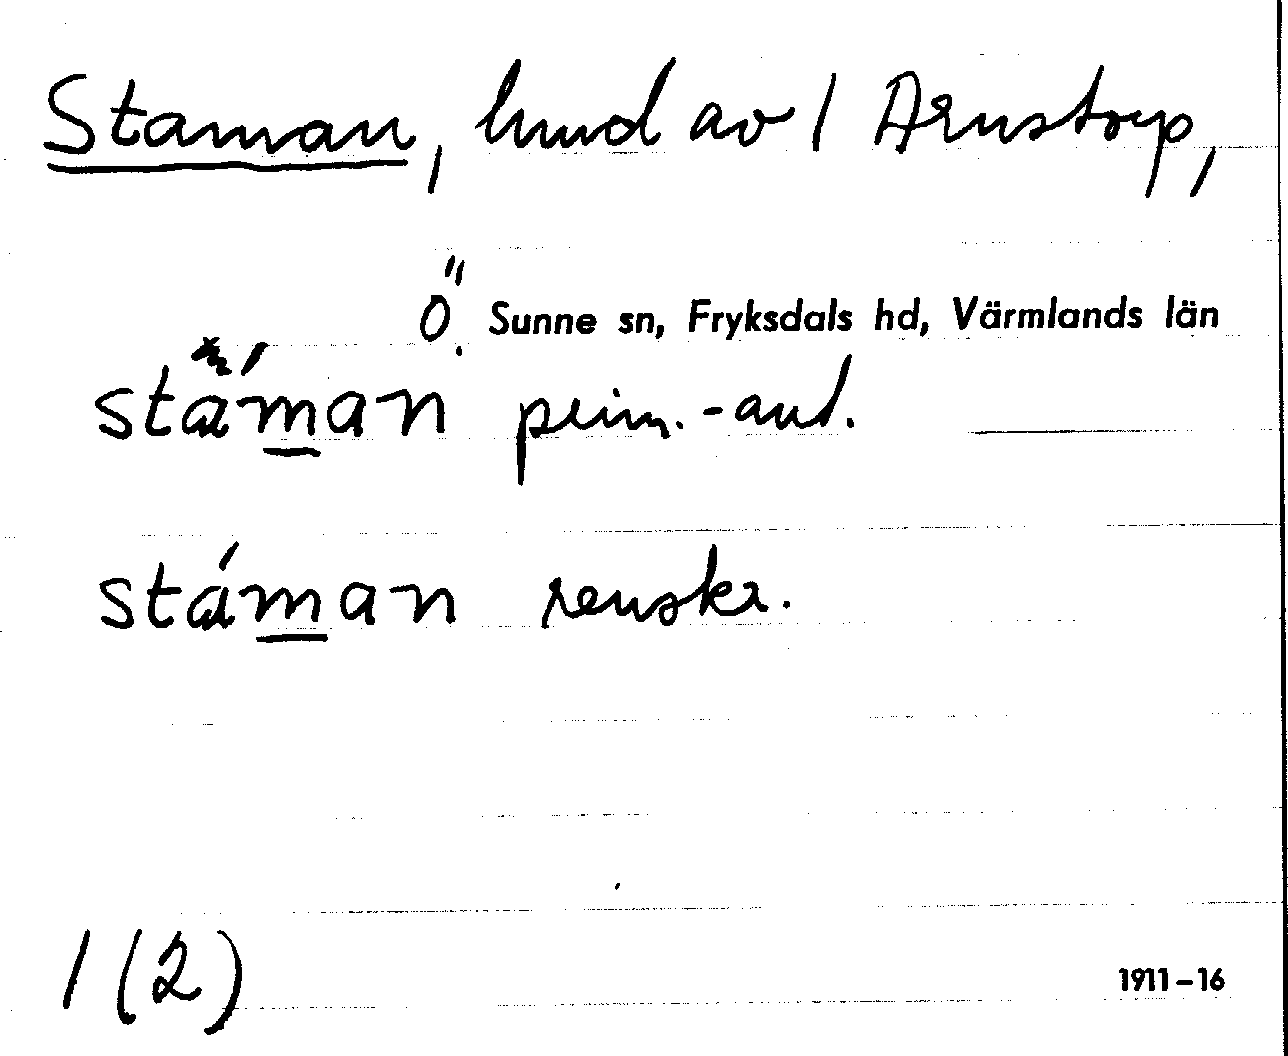 Staman, hmd av / Arnstorp,
Ö. Sunne sn, Fryksdals hd, Värmlands län
stáman prim.-aut.
stáman renskr.
1 (2)
1911-16